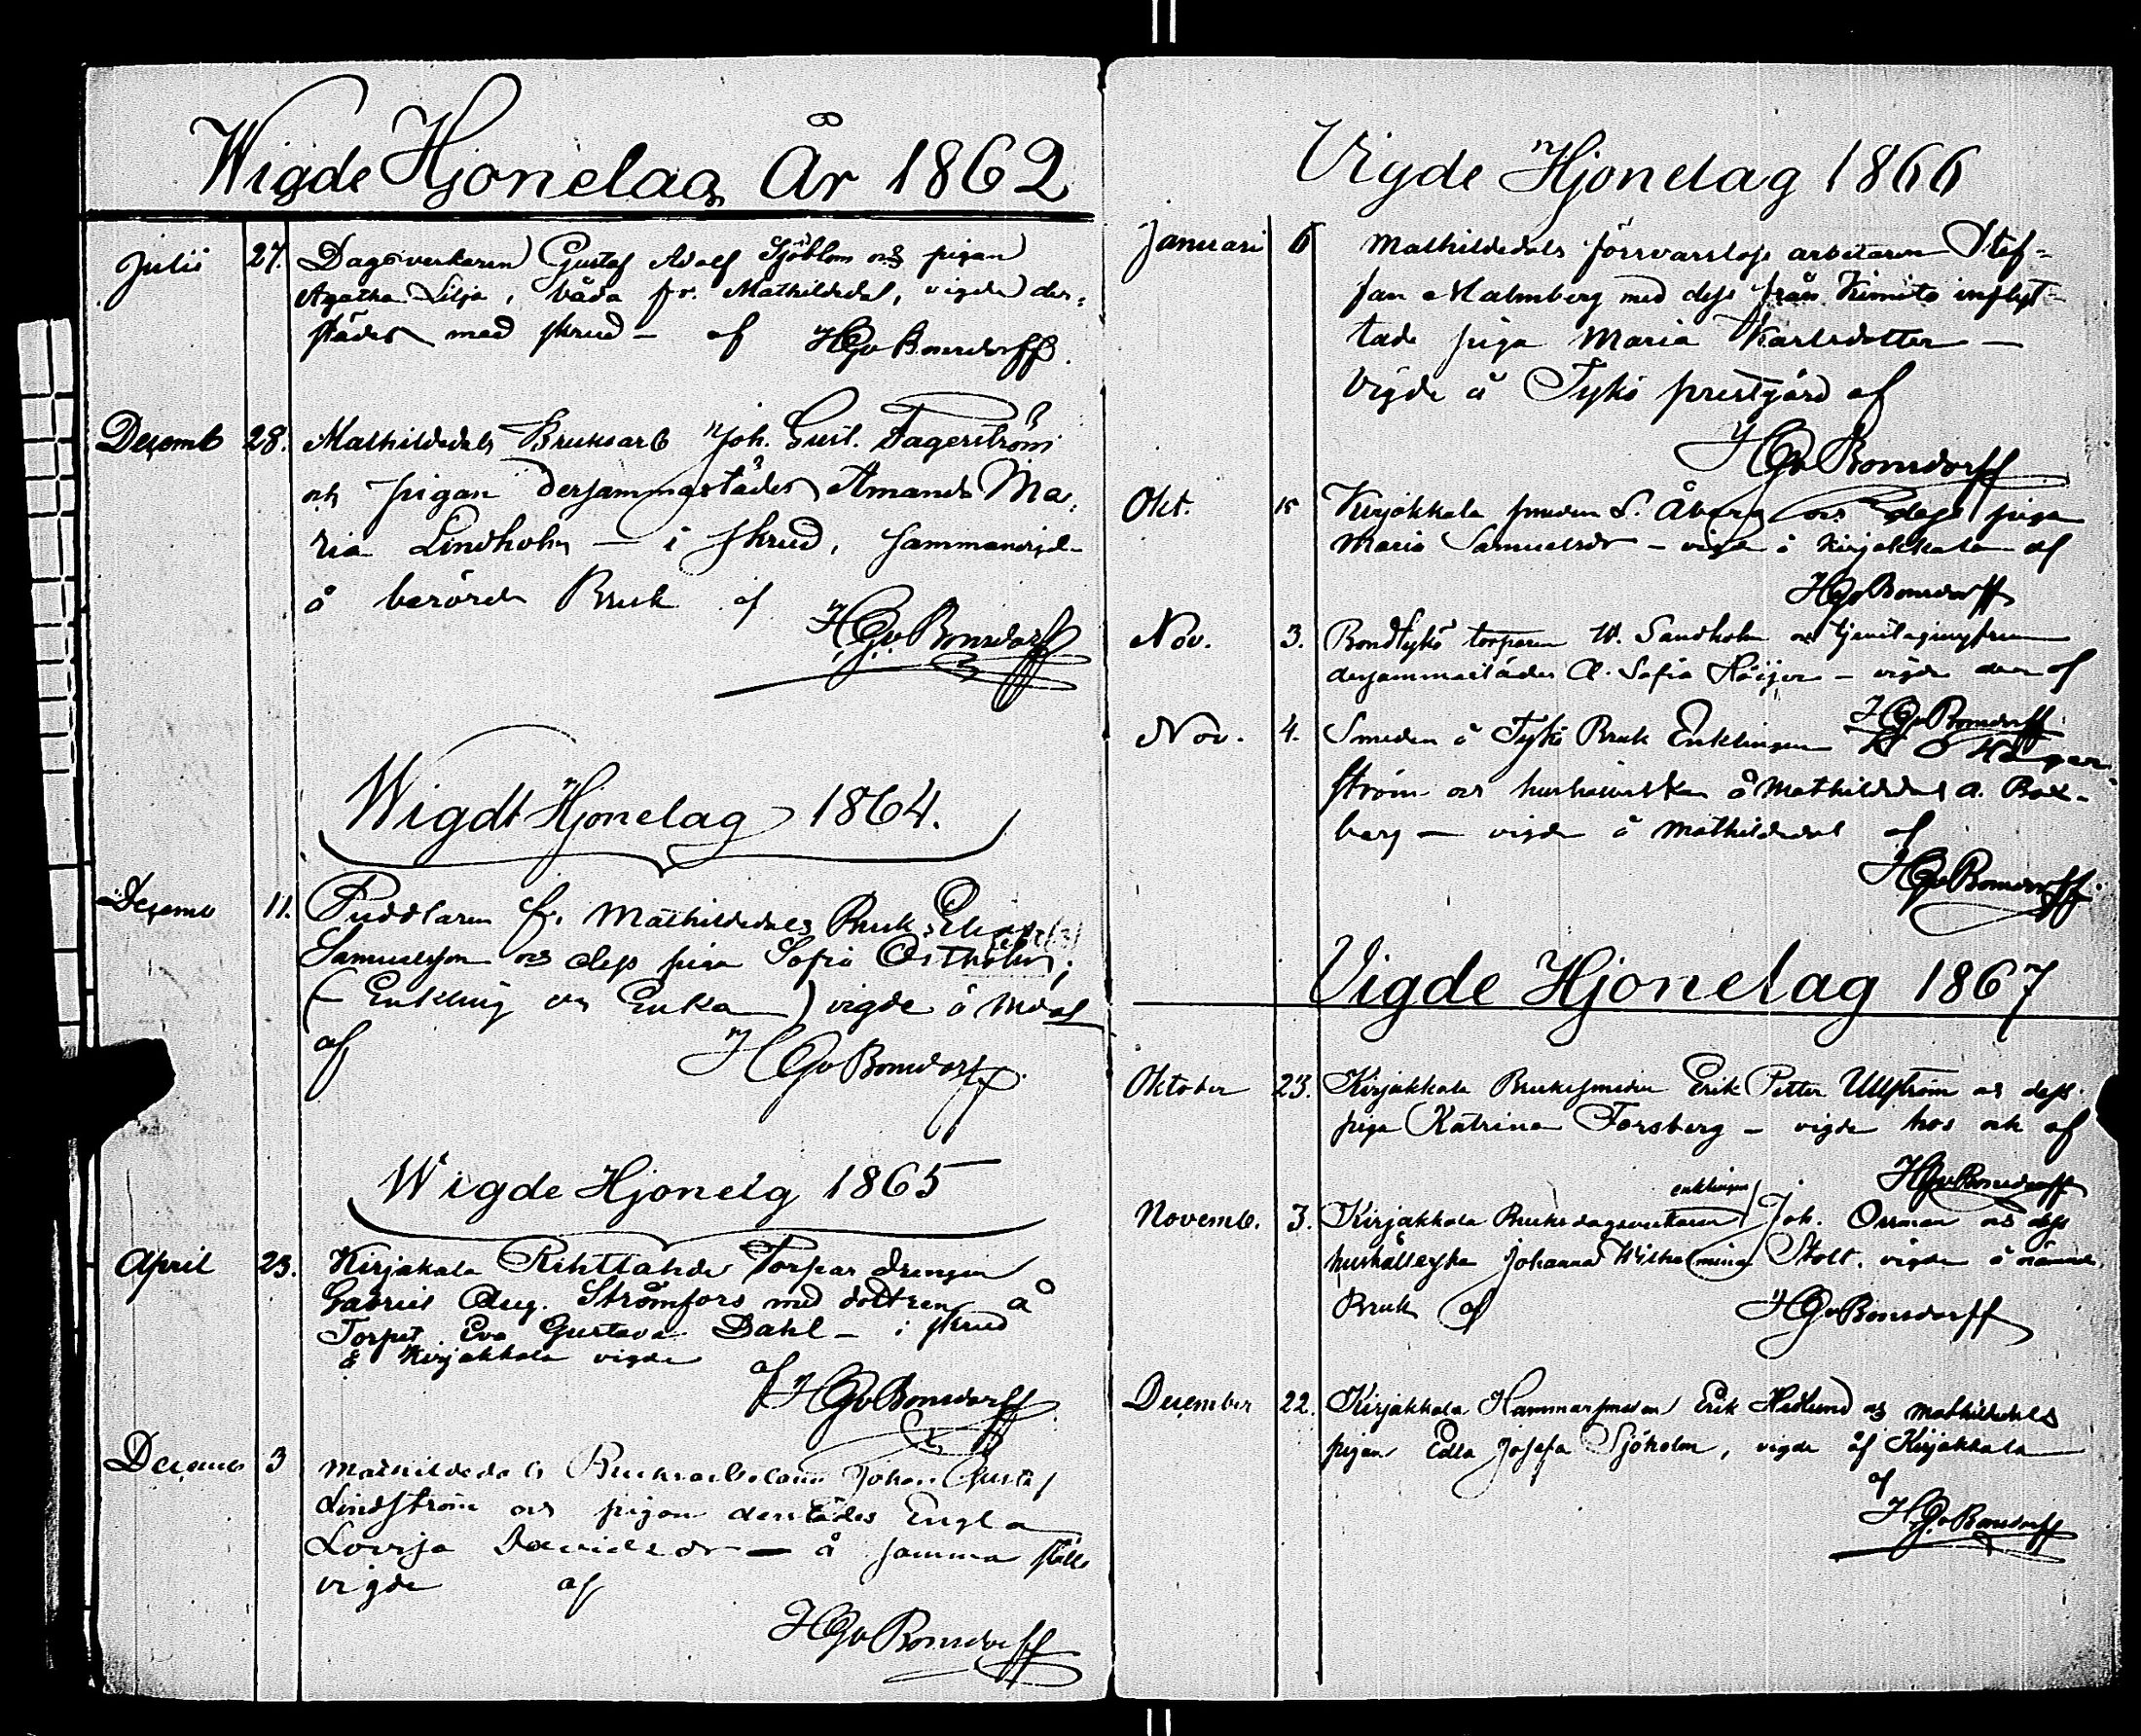 Wigde Hjonelag År 1862
Julii 27. Dagsverkaren Gustaf Adolf Sjöblom och pigan
Agatha Lilja, båda fr. Mathildedal, vigde der-
städes med skrud - af HGvBonsdorff.
Decemb 28. Mathildedals Bruksarb Joh. Gust. Fagerström
och pigan dersammastädes Amanda Ma-
ria Lindholm - i skrud, sammanvigd-
å berörde Bruk af HGvBonsdorff
Wigde Hjonelag 1864.
Decemb 11. Puddlaren fr. Mathildedals Bruk
Samuelsson och dess piga Sofia Östholm,
(- Enkling och Enka -) vigde å Mdal
af HGvBonsdorff.
Wigde Hjonelg 1865
April 23. Kirjakala Rihtlahde Torpar drengen
Gabriel Aug. Strömfors med dottren å
Torpet Eva Gustava Dahl - i skrud
å Kirjakkala vigde af
HGvBonsdorff
Decemb 3 Mathildedals Bruksarbetaren Johan Gustaf
Lindström och pigan derstädes Engla
Lovisa Davidsdr - å samma ställe
vigde af
HGvBonsdorff
Vigde Hjonelag 1866
Januari 6 Mathildedals försvarslöse arbetaren Stef-
fan Malmberg med dess från Kimito inflyt-
tade piga Maria Karlsdotter -
Vigde å Tykö prestgård af
HGvBonsdorff
Okt. 15 Kirjakkala smeden S. Åberg och dess piga
Maria Samuelsdr - vigde i Kirjakkala af
HGvBonsdorff
Nov. 3. Bondtykö torparen W. Sandholm och
dersammastädes A. Sofia Höijer - vigde af
HGvBonsdorff
Nov. 4. Smeden å Tykö Bruk Enklingen
ström och hushållerskan å Mathildedal A. Box-
berg - vigde å Mathildedal af
HGvBonsdorff
Vigde Hjonelag 1867
Oktober 23. Kirjakkala Bruksmeden Erik Petter Ullström och dess
piga Katrina Forsberg - vigde hos och af
HGvBonsdorff
enklingen
Novemb. 3. Kirjakkala Bruks dagsverkaren Joh. Össman och dess
hushållerska Johanna Wilhelmina Stolt. vigde å nämde
Bruk af HGvBonsdorff
December 22. Kirjakkala Hammarsmeden Erik Hedlund och Mathildedals
pigan Edla Josefa Sjöholm, vigde af Kirjakkala
af
HGvBonsdorff